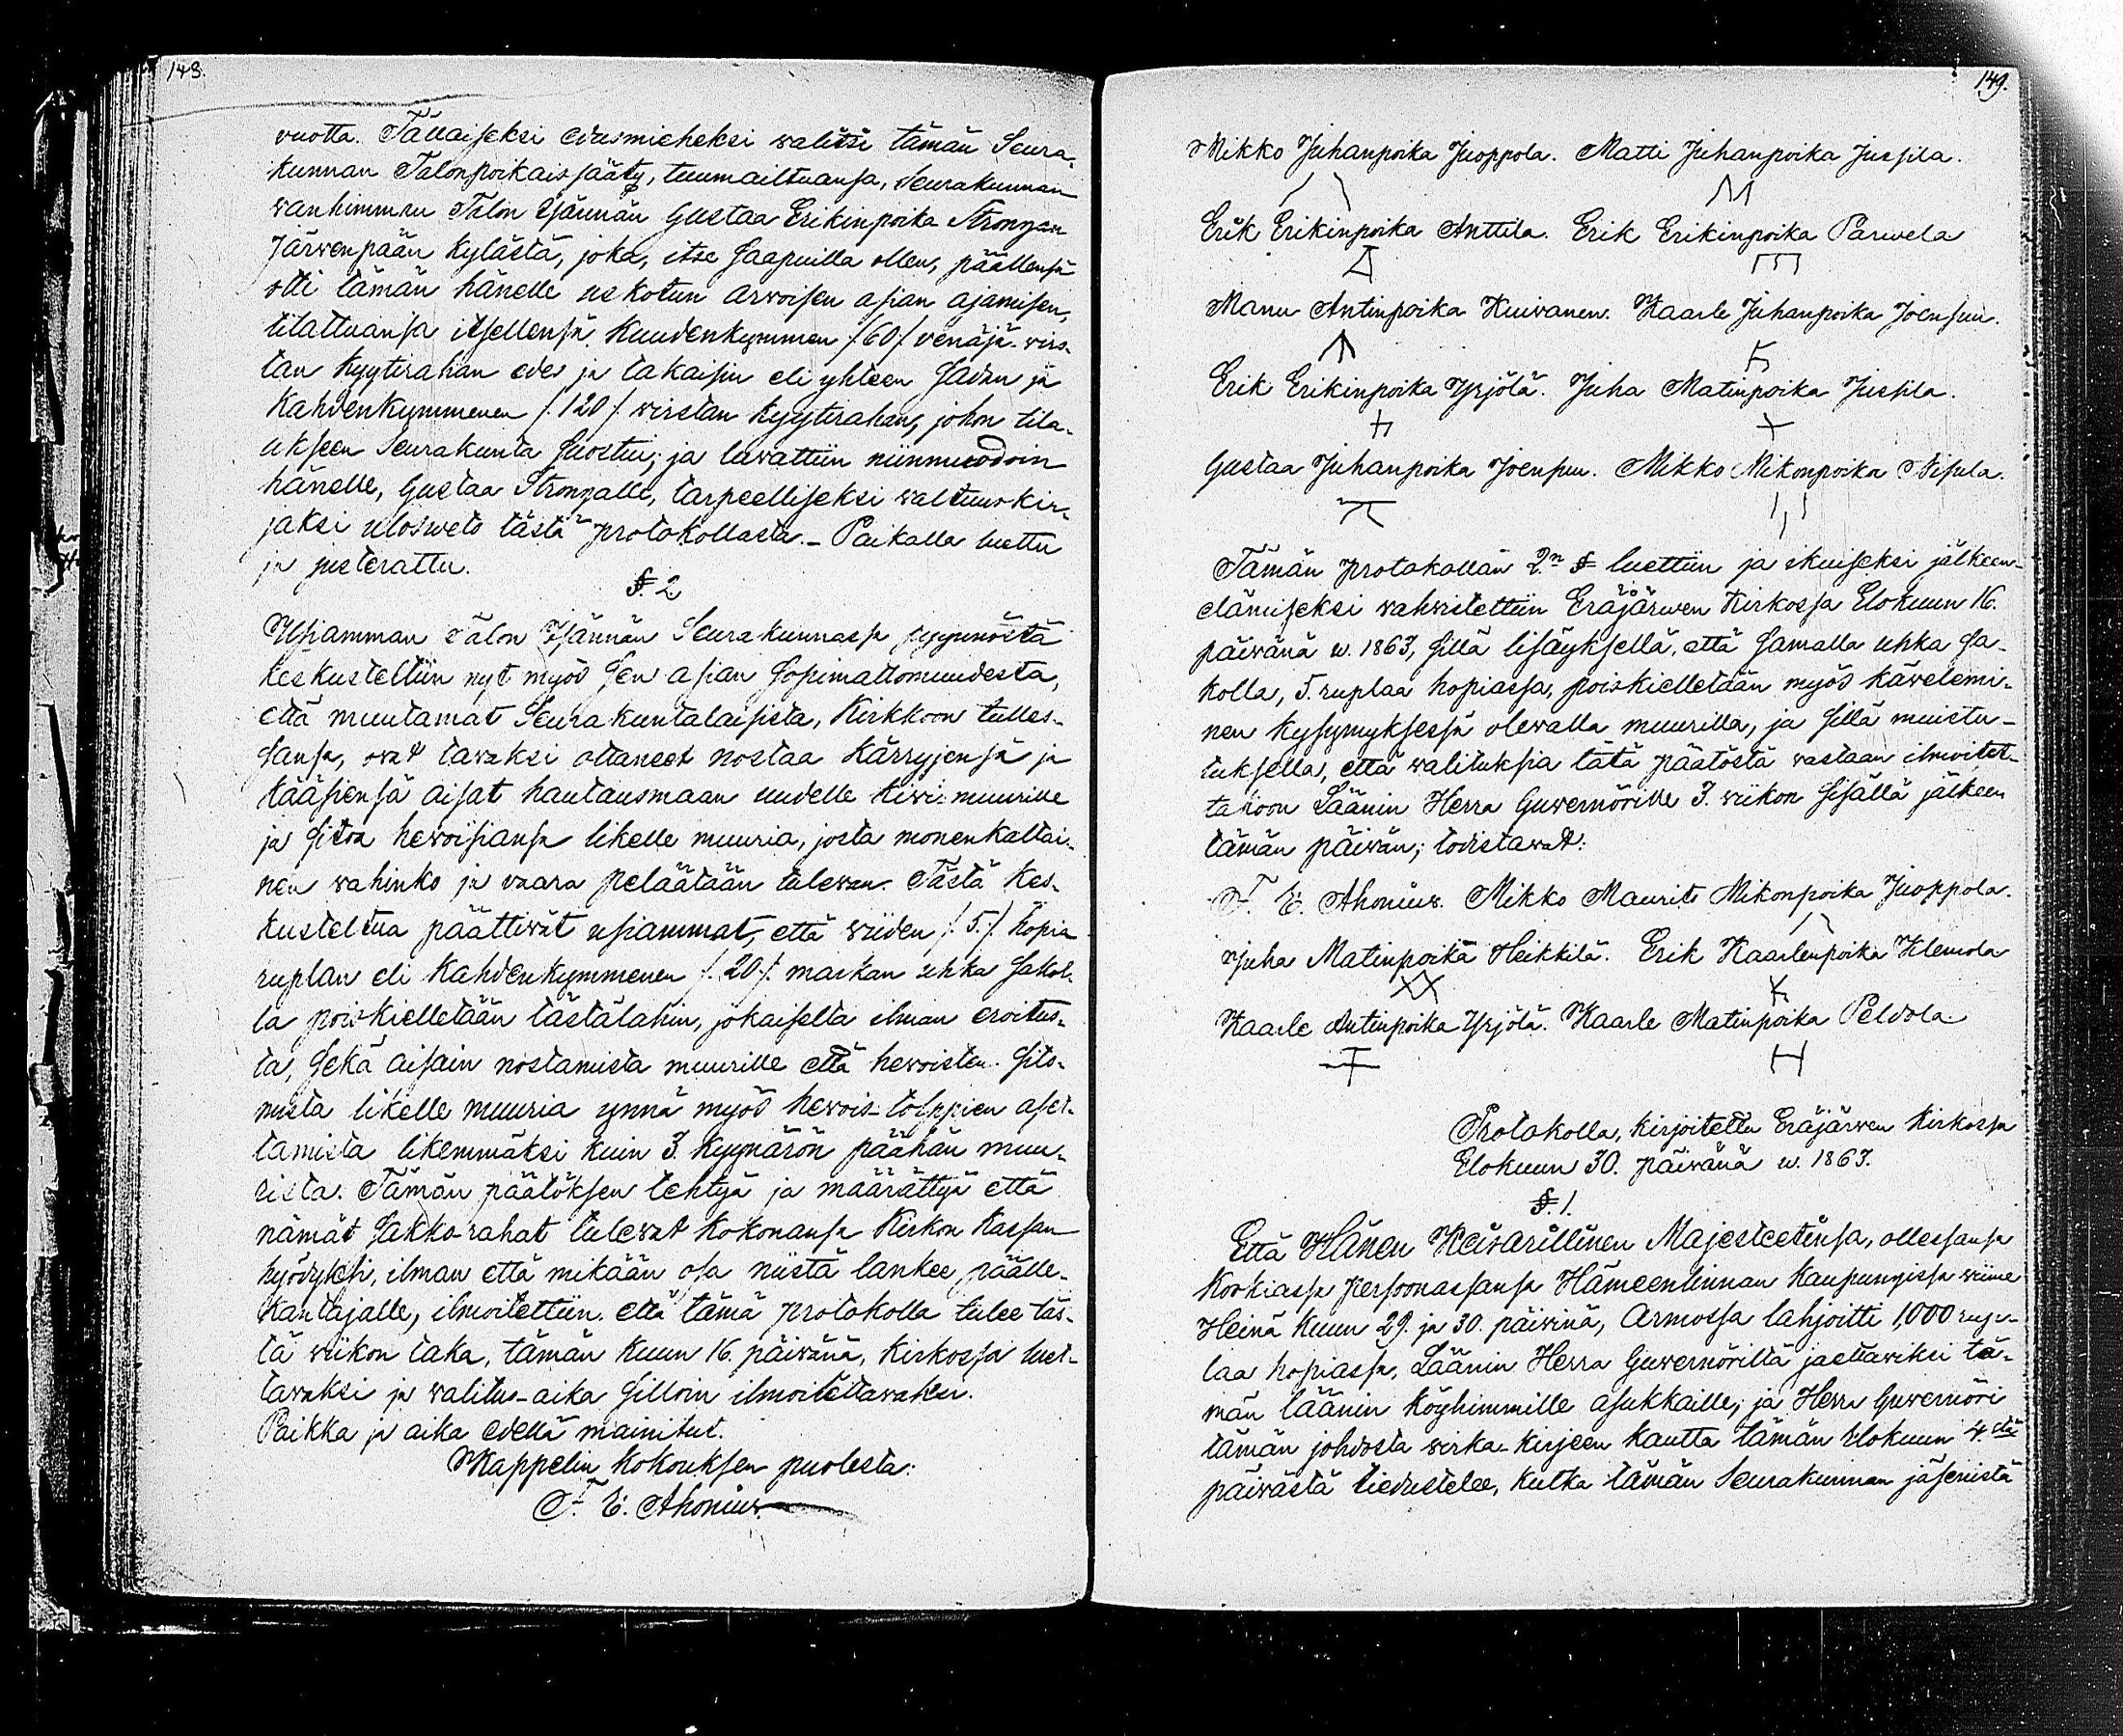 148.
vuotta. Tällaiseksi edusmieheksi walitsi tämän Seura-
kunnan Talonpoikaissääty, tuumailtuansa, Seurakunnan
wanhimman Talon Isännän Gustaa Erikinpoika Strongan
Järwenpään kylästä, joka, itse saapuilla ollen, päällensä
otti tämän hänelle uskotun arwoisen asian ajamisen,
tilattuansa itsellensä kuudenkymmen /60/ venäjä-wirs-
tan kyytirahan edes ja takaisin eli yhteen sadan ja
kahdenkymmenen /.120/. wirstan kyytirahan, johon tila-
ukseen Seurakunta suostui; ja luwattiin niinmuodoin
hänelle, Gustaa Strongalle, tarpeelliseksi waltuuskir-
jaksi ulosweto tästä protokollasta. – Paikalla luettu
ja justerattu.
§. 2.
Usiamman Talon Isännän Seurakunnassa pyynnöstä
keskusteltiin nyt myös sen asian sopimattomuudesta,
että muutamat Seurakuntalaisista, Kirkkoon tulles-
sansa, ovat tavaksi ottaneet nostaa kärryjensä ja
kääsiensä aisat hautausmaan uudelle kiwi-muurille
ja sitoa hewoisiansa likelle muuria, josta monenkaltai-
nen wahinko ja vaara peläätään tulewan. Tästä kes-
kusteltua päättiwät usiammat, että wiiden /.5./ hopia
ruplan eli kahdenkymmenen /.20/. markan uhka sakol-
la poiskielletään tästälähin, jokaiselta ilman eroitus-
ta, sekä aisain nostamista muurille että hewoisten sito-
mista likelle muuria ynnä myös hewois-tolppien aset-
tamista likemmäksi kuin 3. kyynärön päähän muu-
rista. Tämän päätöksen tehtyä ja määrättyä että
nämät sakko-rahat tulewat kokonansa Kirkon Kassan
hyödyksi, ilman että mikään osa niistä lankee päälle-
kantajalle, ilmoitettiin että tämä protokolla tulee täs-
tä wiikon taka, tämän kuun 16. päivänä, Kirkossa luet-
tavaksi ja walitus-aika silloin ilmoitettawaksi.
Paikka ja aika edellä mainitut.
Kappelin kokouksen puolesta:
F. E. Ahonius.
149.
Mikko Juhanpoika Juoppola. Matti Juhanpoika Jussila.
Erik Erikinpoika Anttila. Erik Erikinpoika Pärwelä
Manu Antinpoika Kuivanen. Kaarle Juhanpoika Joensuu.
Erik Erikinpoika Yrjölä. Juha Matinpoika Jussila.
Gustaa Juhanpoika Joensuu. Mikko Mikonpoika Nisula.
Tämän protokollan 2n § luettiin ja ikuiseksi jälkeen-
elämiseksi wahwistettiin Eräjärwen Kirkossa Elokuun 16.
päivänä w. 1863, sillä lisäyksellä, että samalla uhka sa-
kolla, 5. ruplaa hopiassa, poiskielletään myös käwelemi-
nen kysymyksessä olewalla muurilla, ja sillä muistu-
tuksella, että walituksia tätä päätöstä vastaan ilmoitet-
takoon Läänin Herra Guwernörille 3. wiikon sisällä jälkeen
tämän päivän; todistawat:
F. E. Ahonius. Mikko Maurits Mikonpoika Juoppola.
Juha Matinpoika Heikkilä. Erik Kaarlenpoika Klemola
Kaarle Antinpoika Yrjölä. Kaarle Matinpoika Peldola.
Protokolla, kirjoitettu Eräjärwen Kirkossa
Elokuun 30. päivänä w. 1863.
§. 1.
Että Hänen Keisarillinen Majesteetinsa, ollessansa
korkiassa persoonassansa Hämeenlinnan kaupungissa wiime
Heinä kuun 29. ja 30. päivinä, Armossa lahjoitti 1,000 rup-
laa hopiassa, Läänin Herra Guwernöriltä jaettawiksi tä-
män läänin köyhimmille asukkaille; ja Herra Guwernöri
tämän johdosta wirka-kirjeen kautta tämän Elokuun 4.stä
päivästä tiedustelee, kutka tämän Seurakunnan jäsenistä